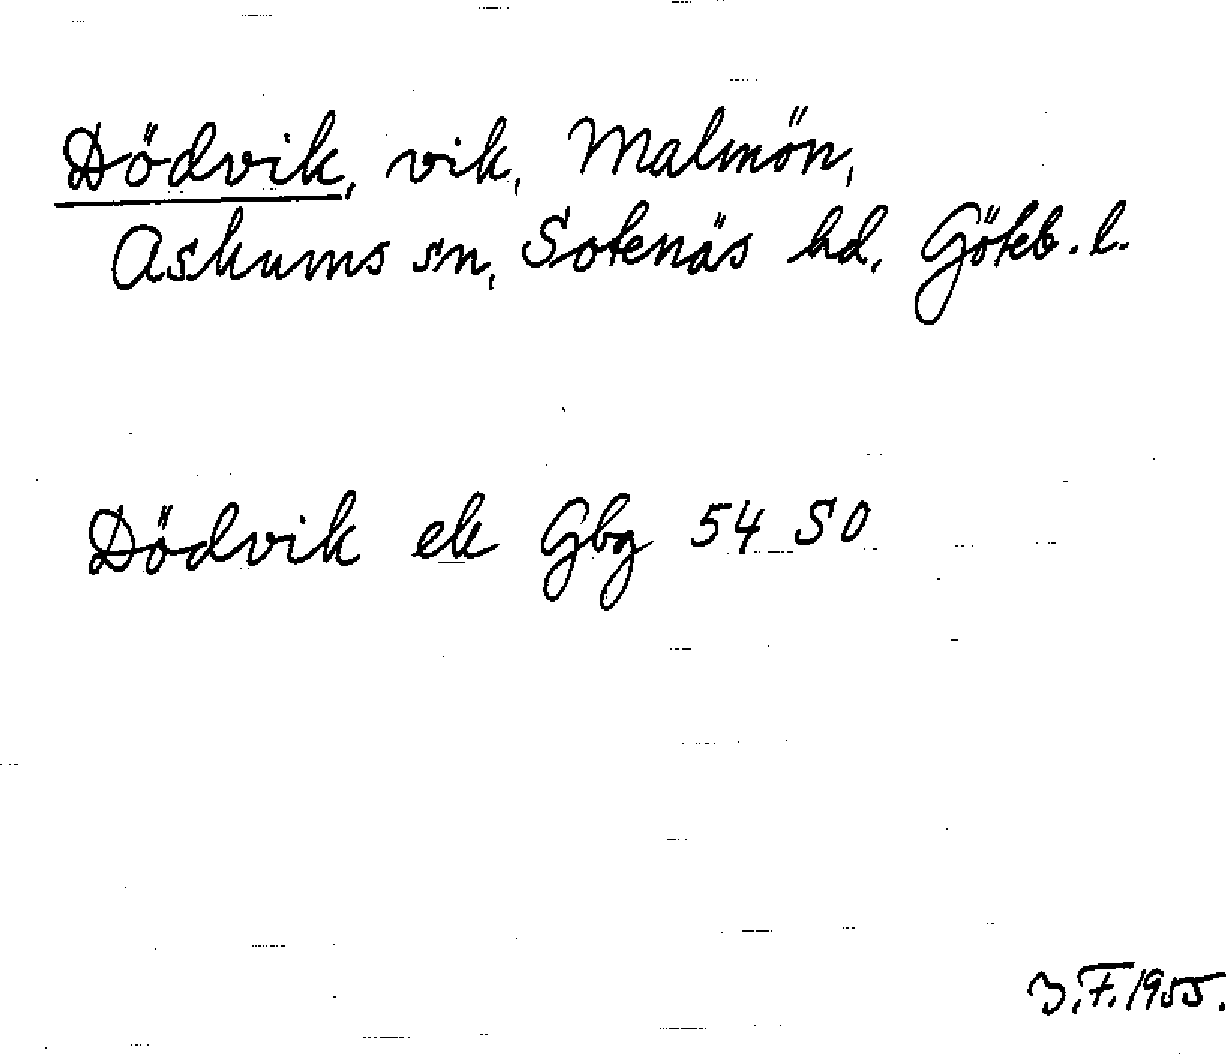 Dödvik, vik, Malmön,
Askums sn, Sotenäs hd, Göteb. l.
Dödvik ek Gbg 54 SO
F. 1955.